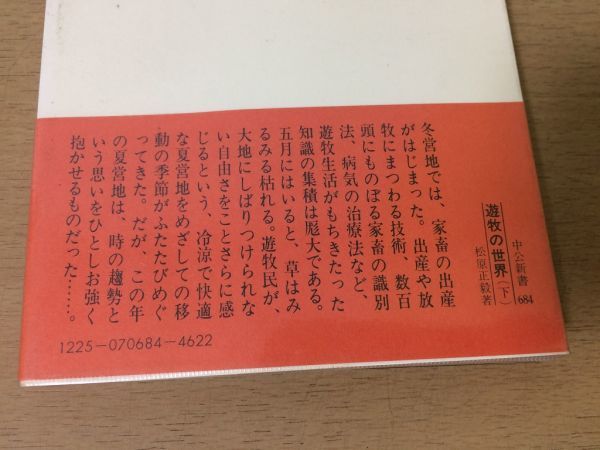 中公新書
684
遊牧の世界(下)
松原正毅著
冬営地では、家畜の出産
がはじまった。出産や放
牧にまつわる技術、数百
頭にものぼる家畜の識別
法、病気の治療法など、
遊牧生活がもちきたった
知識の集積は厖大である。
五月にはいると、草はみ
るみる枯れる。遊牧民が、
大地にしばりつけられな
い自由さをことさらに感
じるという、冷涼で快適
な夏営地をめざしての移
動の季節がふたたびめぐ
ってきた。だが、この年
の夏営地は、時の趨勢と
いう思いをひとしお強く
抱かせるものだった……。
1225-070684-4622